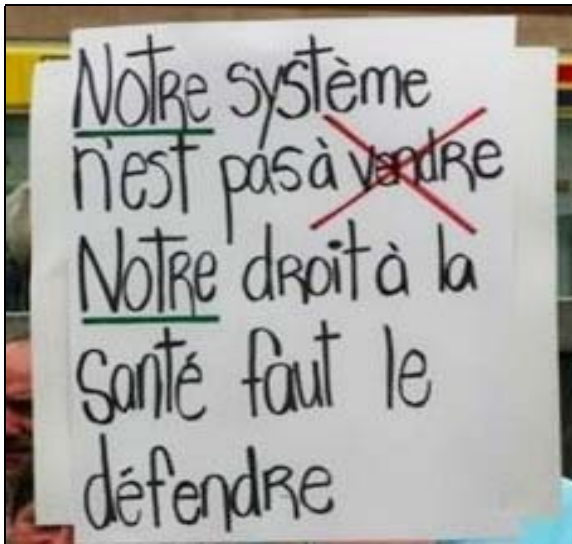 NOTRE système
n'est pas à vendre
NOTRE droit à la
santé faut le
défendre